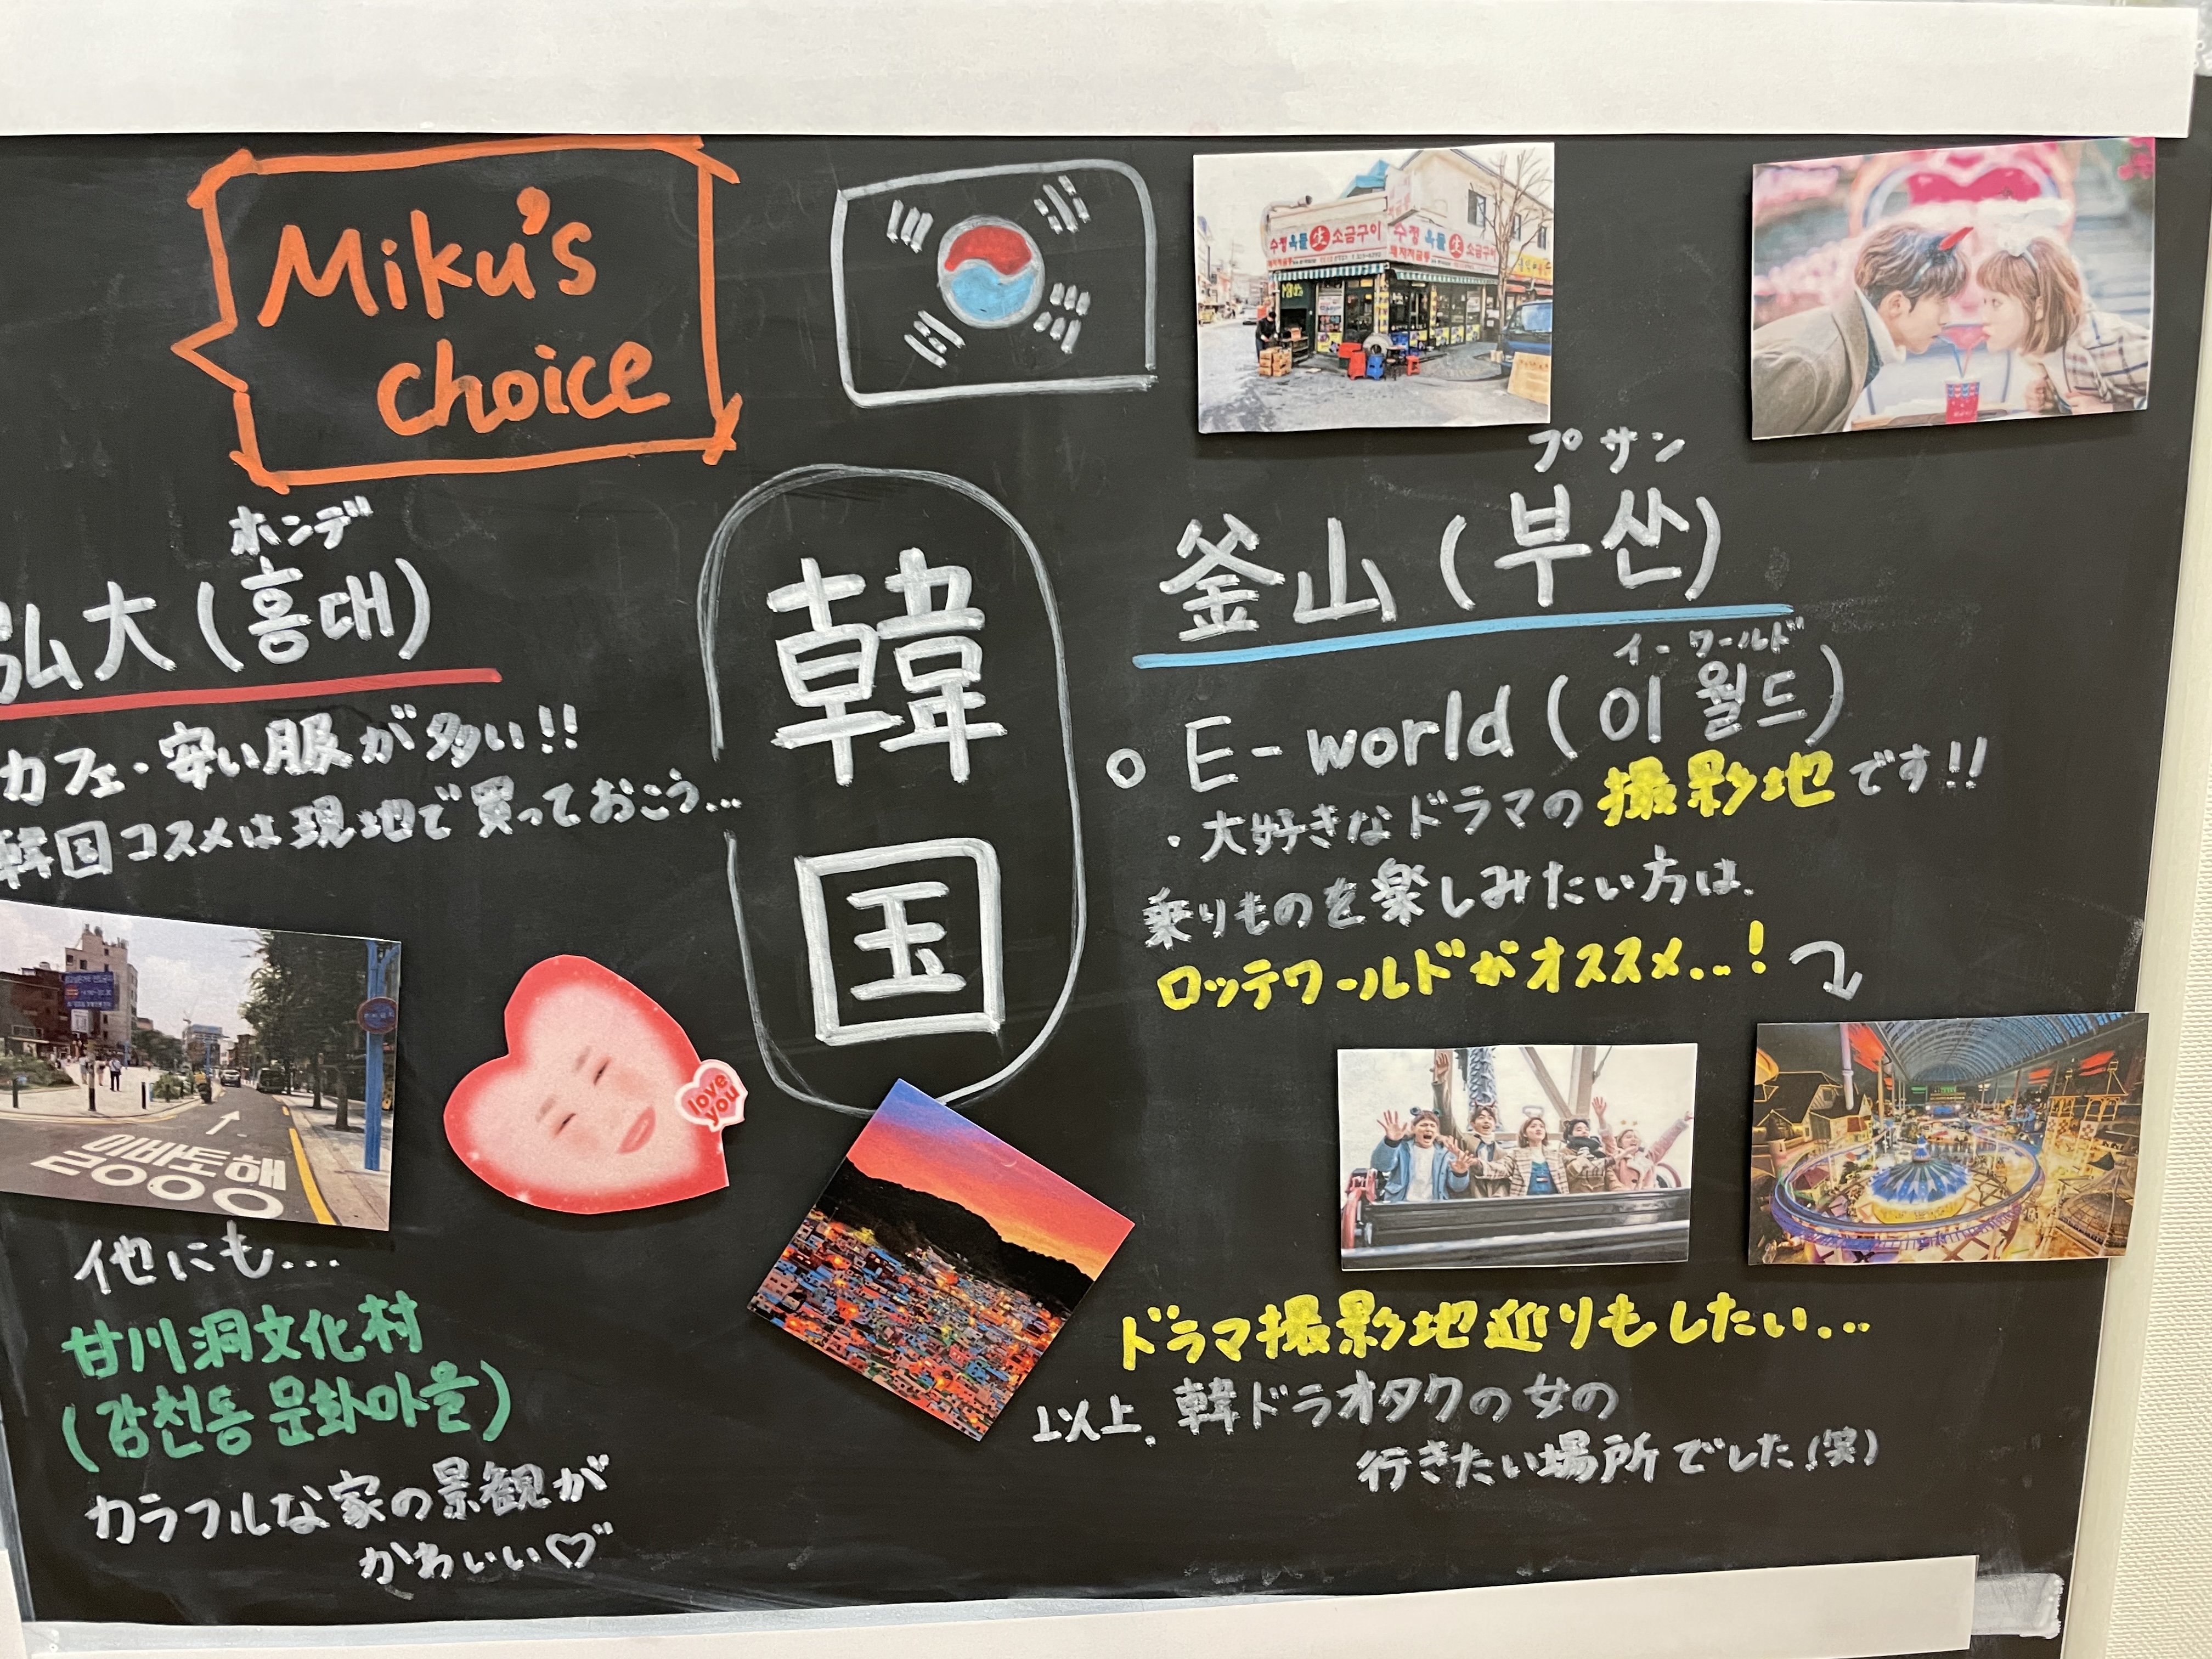 Miku's
choice
韓国
ホンデ
弘大(홍대)
カフェ・安い服が多い!!
韓国コスメは現地で買っておこう...
일방통행
love
you
他にも...
甘川洞文化村
(감천동 문화마을)
カラフルな家の景観が
かわいい♡
수정 옥돌 生 소금구이
수정 옥돌 生 소금구이
プサン
釜山(부산)
イーワールド
○ E-world(이월드)
・大好きなドラマの撮影地です!!
乗りものを楽しみたい方は、
ロッテワールドがオススメ...!
ドラマ撮影地巡りもしたい...
以上、韓ドラオタクの女の
行きたい場所でした(笑)